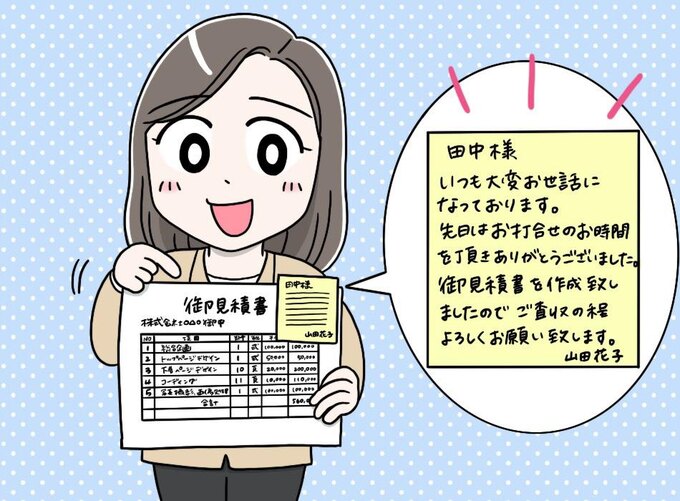 御見積書
株式会社○△□御中
田中様
山田花子
NO 項目
1 100,000 100,000
2 トップページデザイン 1 式 50,000 50,000
3 下層ページデザイン 10 頁 20,000 200,000
4 コーディング 11 頁 10,000 110,000
5 1 式 100,000 100,000
合計 560,000
田中様
いつも大変お世話に
なっております。
先日はお打合せのお時間
を頂きありがとうございました。
御見積書を作成致し
ましたので ご査収の程
よろしくお願い致します。
山田花子